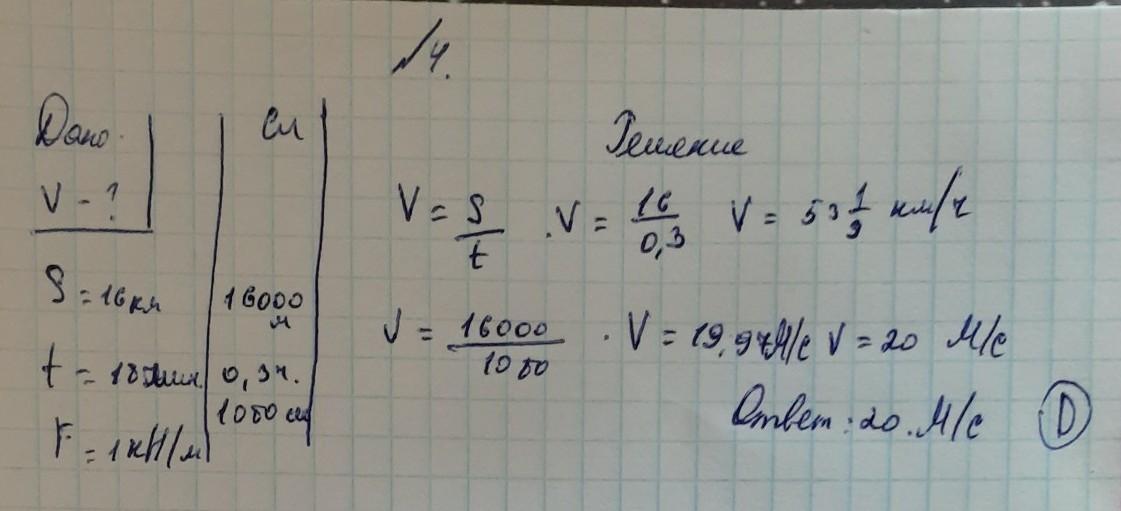 №4.
Дано. Си Решение
V - ?
V = S/t . V = 16/0,3 V = 53 1/3 км/ч
S = 16км 16000 м
V = 16000/1080 . V = 19,97М/с V = 20 М/с
t = 18мин. 0,3ч.
1080 с
Ответ: 20. М/с D
F = 1кН/м